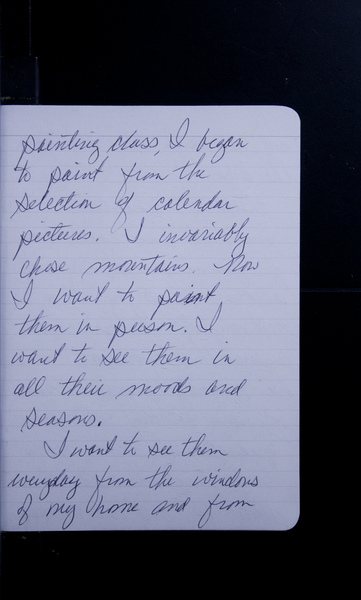 painting class, I began
to paint from the
selection of calendar
pictures. I invariably
chose mountains. Now
I want to paint
them in person. I
want to see them in
all their moods and
seasons.
I want to see them
everyday from the windows
of my home and from